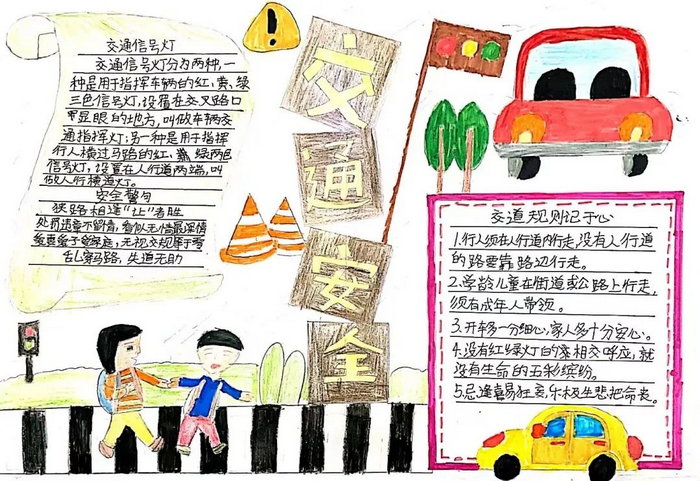 交通信号灯
交通信号灯分为两种,一
种是用于指挥车辆的红、黄、绿
三色信号灯,设置在交叉路口
显眼的地方,叫做车辆交
通指挥灯;另一种是用于指挥
行人横过马路的红、绿两色
信号灯,设置在人行道两端,叫
做人行横道灯。
安全警句
狭路相逢“让”者胜
处罚违章不留情,看似无情最深情
爱妻爱子爱家庭,无视交规等于零
乱穿马路,失道无助
交
通
安
全
交道规则记于心
1.行人须在人行道内行走,没有人行道
的路要靠路边行走。
2.学龄儿童在街道或公路上行走,
须有成年人带领。
3.开车多一分细心,家人多十分安心。
4.没有红绿灯的豪相交呼应,就
没有生命的五彩缤纷。
5.忌逢喜易狂妄,乐极生悲把命丧。